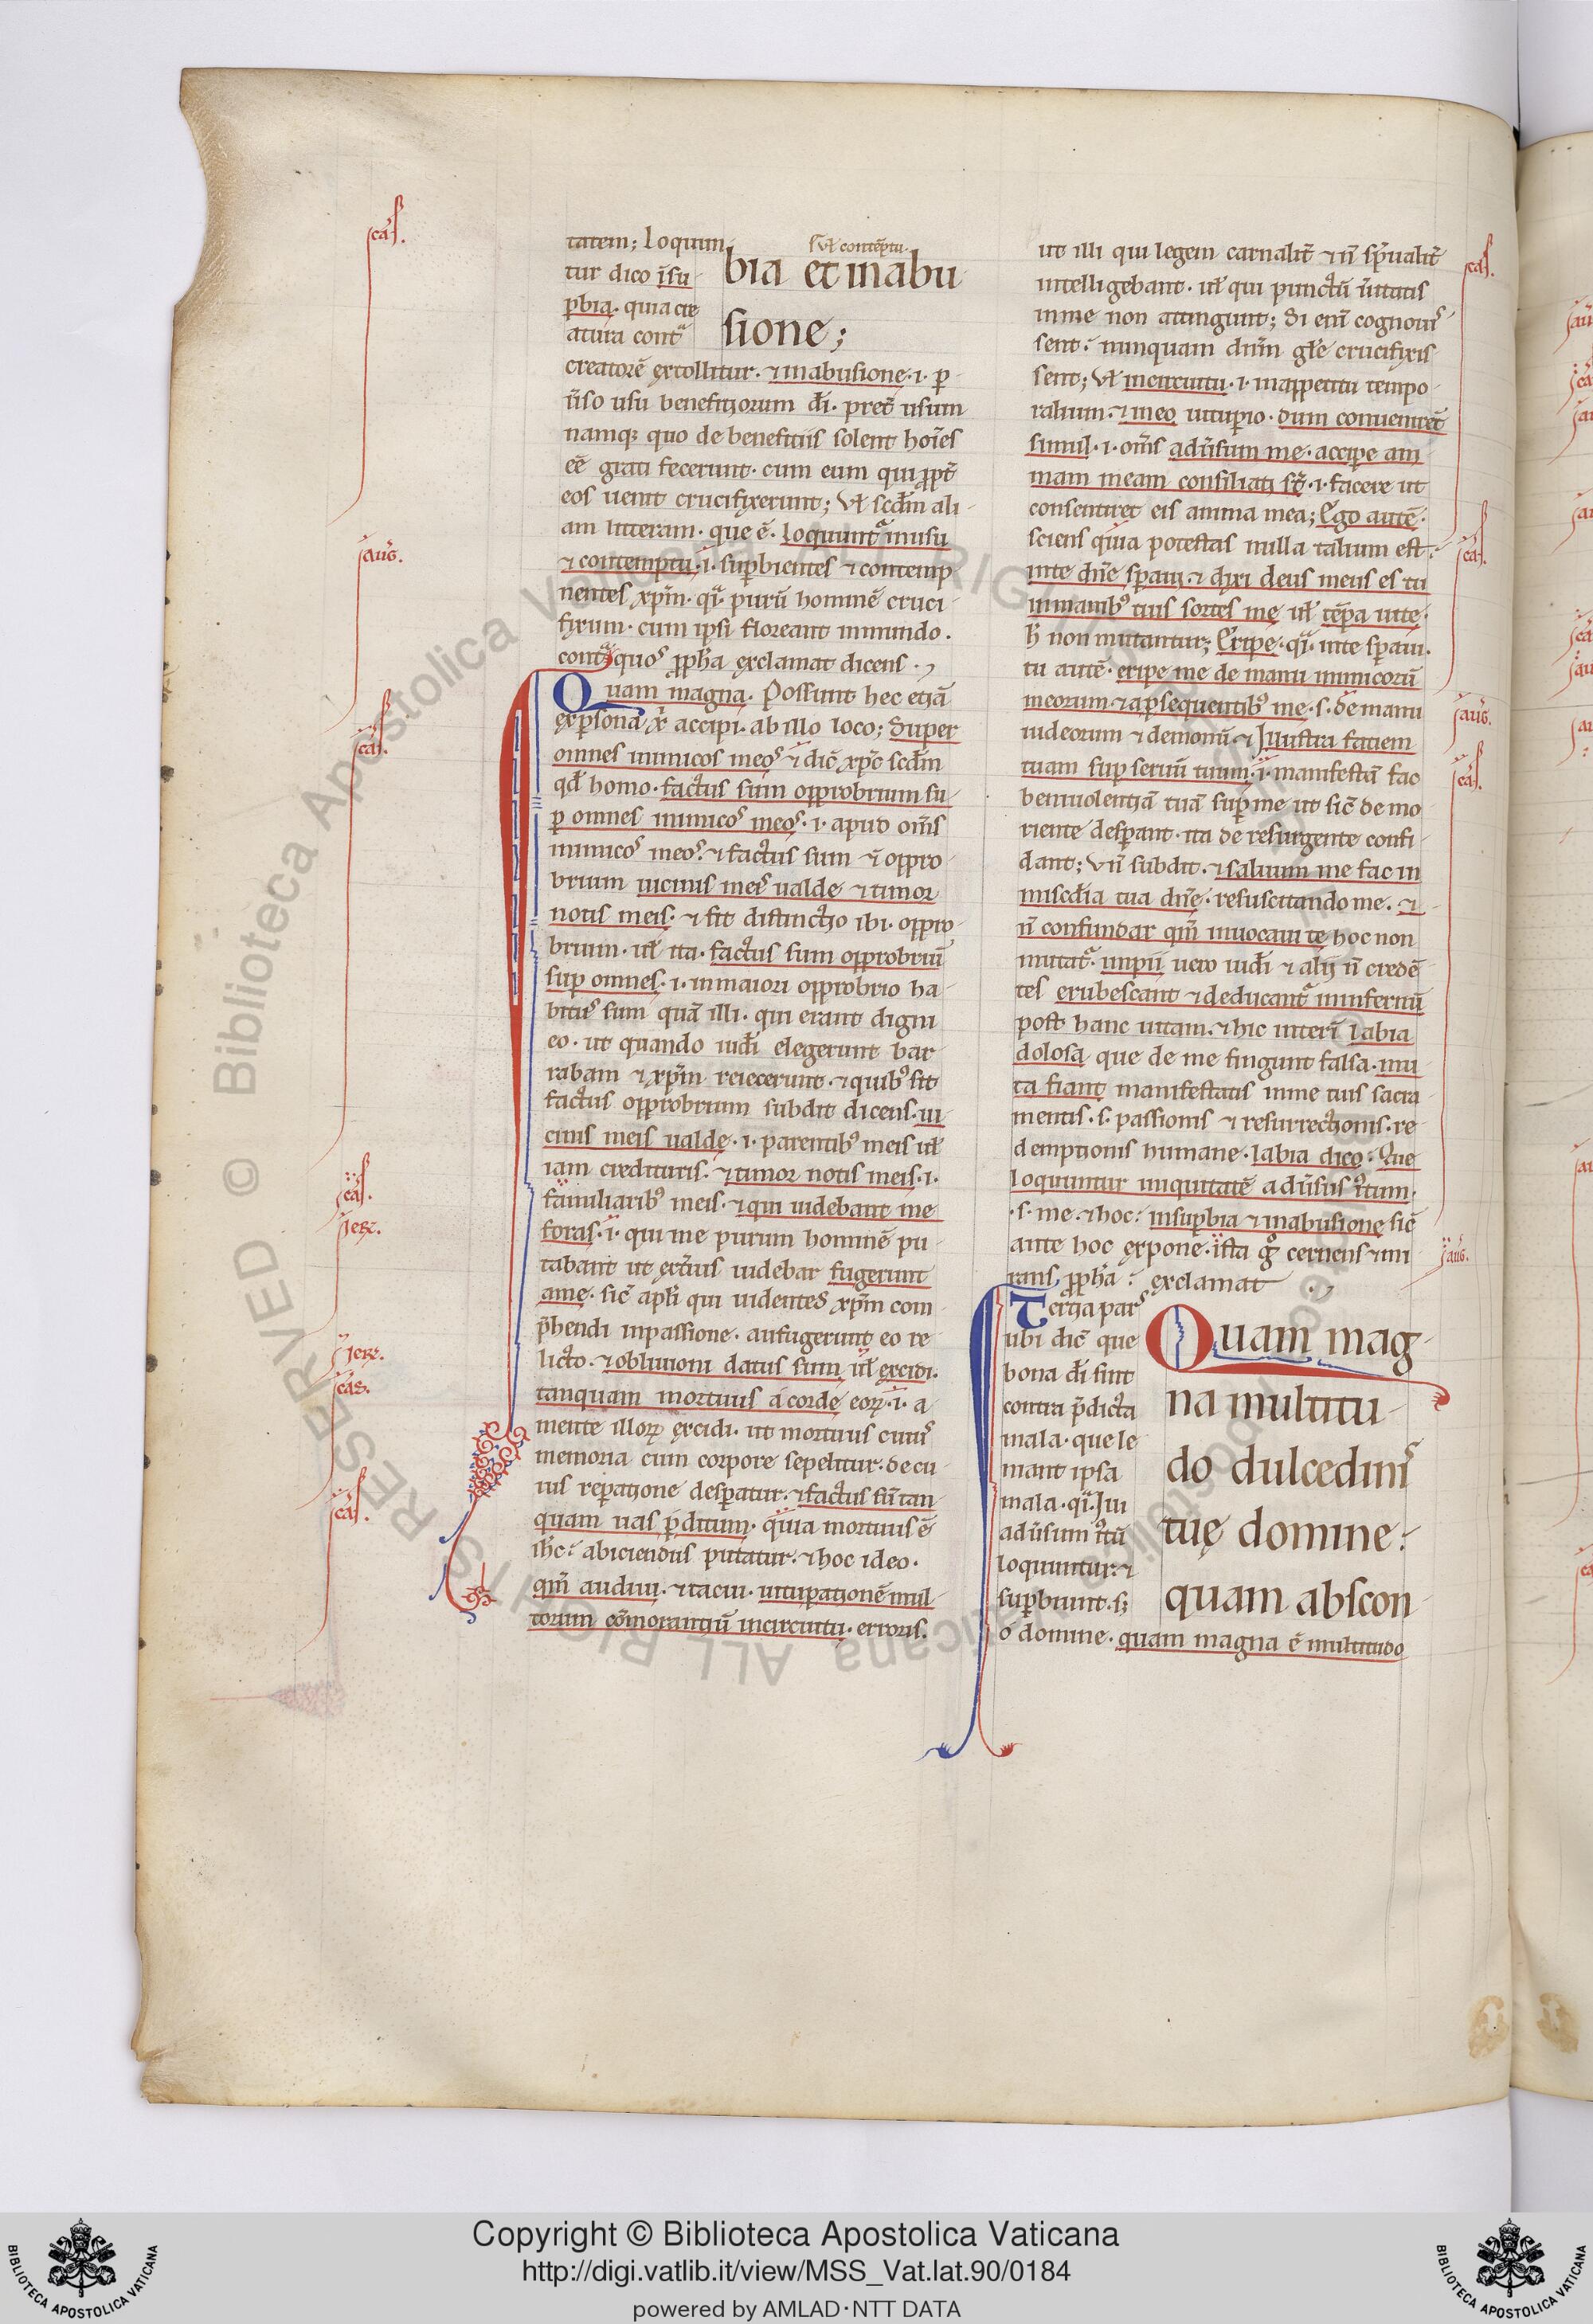 tatem; loquun
tur dico ĩsu-
ꝑbia. quia cre
atura contᵃ
bia et in abu
ſl ul̃ contẽptu.
sione;
creatorẽ extollitur. ⁊ in abusione .i. ꝑ-
ũso usu benefitiorum dĩ. pret̃ usum
namq; quo de benefitiis solent hoĩes
eẽ grati fecerunt. cum eum qui ꝓpt̃
eos uenit crucifixerunt; Vl̃ scdm̃ ali-
am litteram. que ẽ. loquuntᵃ in usu
⁊ contemptu .i. suꝑbientes ⁊ contemp
nentes xp̃m. qͣi. purũ hominẽ cruci-
fixum. cum ipsi floreant in mundo.
contᵃ quos ꝓph̃a exclamat dicens.
Quam magna. Possunt hec etiã
ex ꝑsona x̃ accipi. ab illo loco; Super
omnes inimicos meos ⁊ dic̃ xp̃c scdm̃
qd̃ homo. factus sum opprobrium su-
ꝑ omnes inimicos meos. i. apud om̃s
inimicos meos. ⁊ factus sum ⁊̃ oppro-
brium uicinis meis ualde ⁊ timor
notis meis. ⁊ fit distinctio ibi. oppro-
brium. ul̃ ita. factus sum opprobriũ
suꝑ omnes. i. in maiori opprobrio ha-
bitus sum quã illi. qui erant digni
eo. ut quando iudĩ elegerunt bar-
rabam ⁊ xp̃m reiecerunt. ⁊ quibꝰ sit
factus opprobrium subdit dicens. ui-
cinis meis ualde. i. parentibꝰ meis ul̃
iam credituris. ⁊ timor notis meis. i.
familiaribꝰ meis. ⁊ qui uidebant me
foras. i. qui me purum hominẽ pu-
tabant ut exterius uidebar fugerunt
a me. sic̃ apl̃i qui uidentes xp̃m com-
p̃hendi in passione. aufugerunt eo re-
licto. ⁊ obliuioni datus sum ul̃ excidi.
tanquam mortuus a corde eoꝝ. i. a
mente illoꝝ excidi. ut mortuus cuius
memoria cum corpore sepelitur. de cu-
ius reꝑatione desꝑatur. ⁊ factus sũ tan
quam uas ꝑditum. quia mortuus ẽ
ih̃c: abiciendus putatur. ⁊ hoc ideo.
qm̃ audiui. ⁊ tacui. uituꝑationẽ mul-
torum cõmorantiũ in circuitu. erroris.
ut illi qui legem carnalit̃ ⁊ ñ sp̃ualit̃
intelligebant. ul̃ qui punctũ ũitatis
in me non attingunt; Si enĩ cognouis-
sent: nunquam dñm gl̃e crucifixis
sent; Vl̃ in circuitu. i. in appetitu tempo-
ralium. ⁊ in eo uituꝑio. dum conuenirẽt
simul. i. om̃s adũsum me. accipe ani
mam meam consiliati st̃. i. facere ut
consentiret eis anima mea; Ego autẽ.
sciens quia potestas nulla talium est:
in te dñe sꝑaui. ⁊ dixi deus meus es tu
in manibꝰ tuis sortes me ul̃ tẽpa uite.
h̃ non mutantur; Eripe. qͣi. in te sꝑaui.
tu autẽ. eripe me de manu inimicorũ
meorum. ⁊ a ꝑsequentibꝰ me. s. de manu
iudeorum ⁊ demonũ. ⁊ Illustra faciem
tuam suꝑ seruũ tuum. i. manifestã fac
beniuolentiã tuã suꝑ me ut sic̃ de mo-
riente desꝑant. ita de resurgente confi-
dant; Vñ subdit. ⁊ saluum me fac in
misc̃dia tua dñe. resuscitando me. ⁊
ñ confundar qm̃ inuocaui te hoc non
mutatᵃ. impii uero iudĩ ⁊ alii ñ credẽ
tes erubescant ⁊ deducantᵃ in infernũ
post hanc uitam. ⁊ hic interĩ labia
dolosa que de me fingunt falsa. mu
ta fiant manifestatis in me tuis sacra
mentis. s. passionis ⁊ resurrectionis. re-
demptionis humane. labia dico. Que
loquuntur iniquitatẽ adũsus iᵒtum.
.s. me. ⁊ hoc: in suꝑbia ⁊ in abusione sic̃
ante hoc expone. ista gͦ cernens ⁊ mi
rans ꝓph̃a: exclamat
Tertia pars
ubi dic̃ que
bona dĩ sint
contra p̃dicta
mala. que le
niant ipsa
mala. qͣi. Illi
adũsum iᵒtũ
loquuntur. ⁊
suꝑbiunt. s;
Quam mag-
na multitu-
do dulcedinis
tuę domine:
quam abscon-
o domine. quam magna ẽ multitudo
cas.
aug̃.
cas.
cas.
ier̃.
ier̃.
cas.
cas.
cas.
cas.
aug̃.
cas.
aug̃.
Copyright © Biblioteca Apostolica Vaticana
http://digi.vatlib.it/view/MSS_Vat.lat.90/0184
powered by AMLAD·NTT DATA
BIBLIOTECA APOSTOLICA VATICANA
BIBLIOTECA APOSTOLICA VATICANA